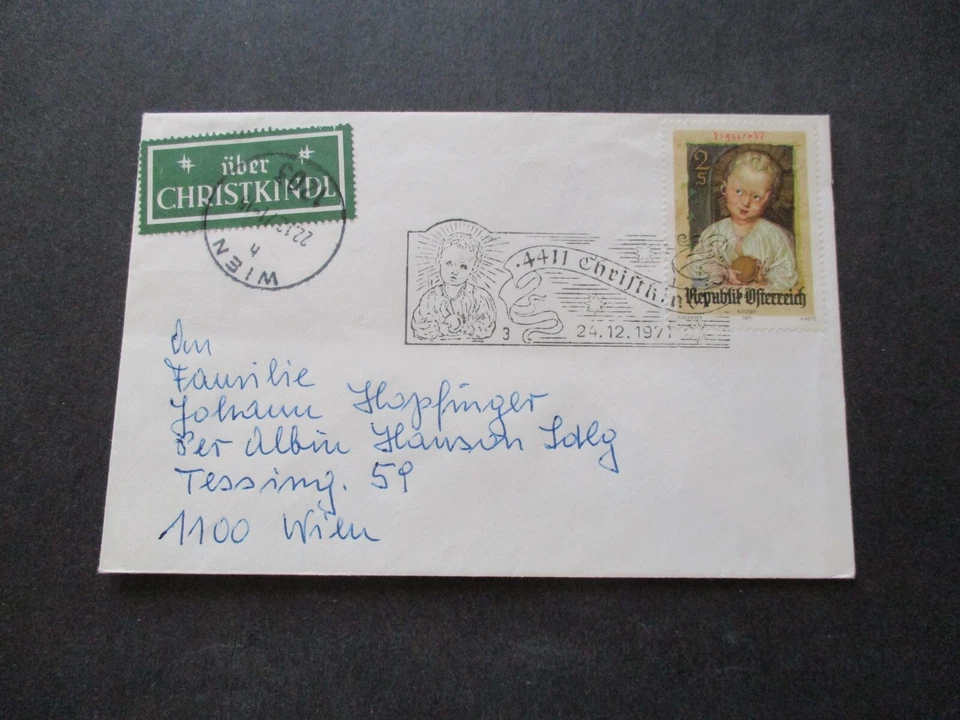 über
CHRISTKINDL
1103
22.12.71
4
WIEN
2
S
Republik Österreich
1971
·4411 Christkin
3 24.12.1971
An
Familie
Johann Hopfinger
Per Albin Hanson Sdlg
Tessing. 59
1100 Wien